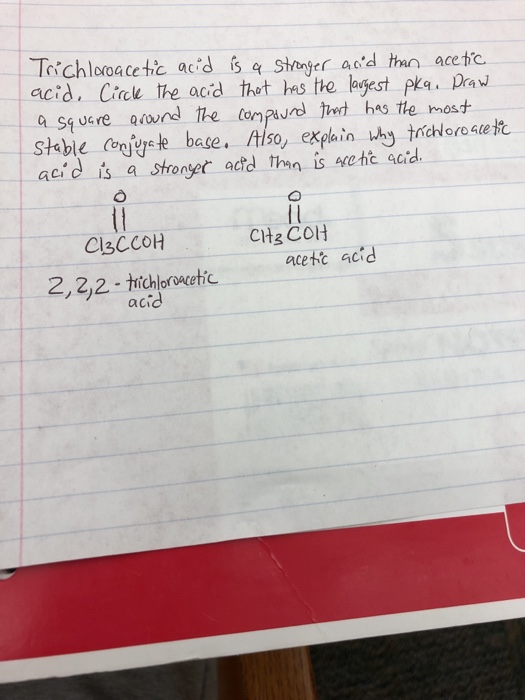 Trichloroacetic acid is a stronger acid than acetic
acid. Circle the acid that has the largest pka. Draw
a square around the compound that has the most
stable conjugate base. Also, explain why trichloroacetic
acid is a stronger acid than is acetic acid.
O O
|| ||
Cl3CCOH CH3COH
acetic acid
2,2,2-trichloroacetic
acid